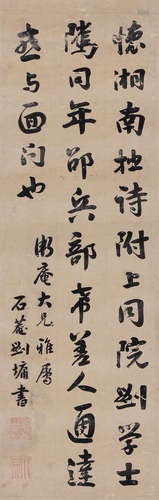 懷湘南拙詩附上同院劉學士
騰同年邵兵部希差人面達
惑与面问也
衡庵大兄雅屬
石菴劉墉書